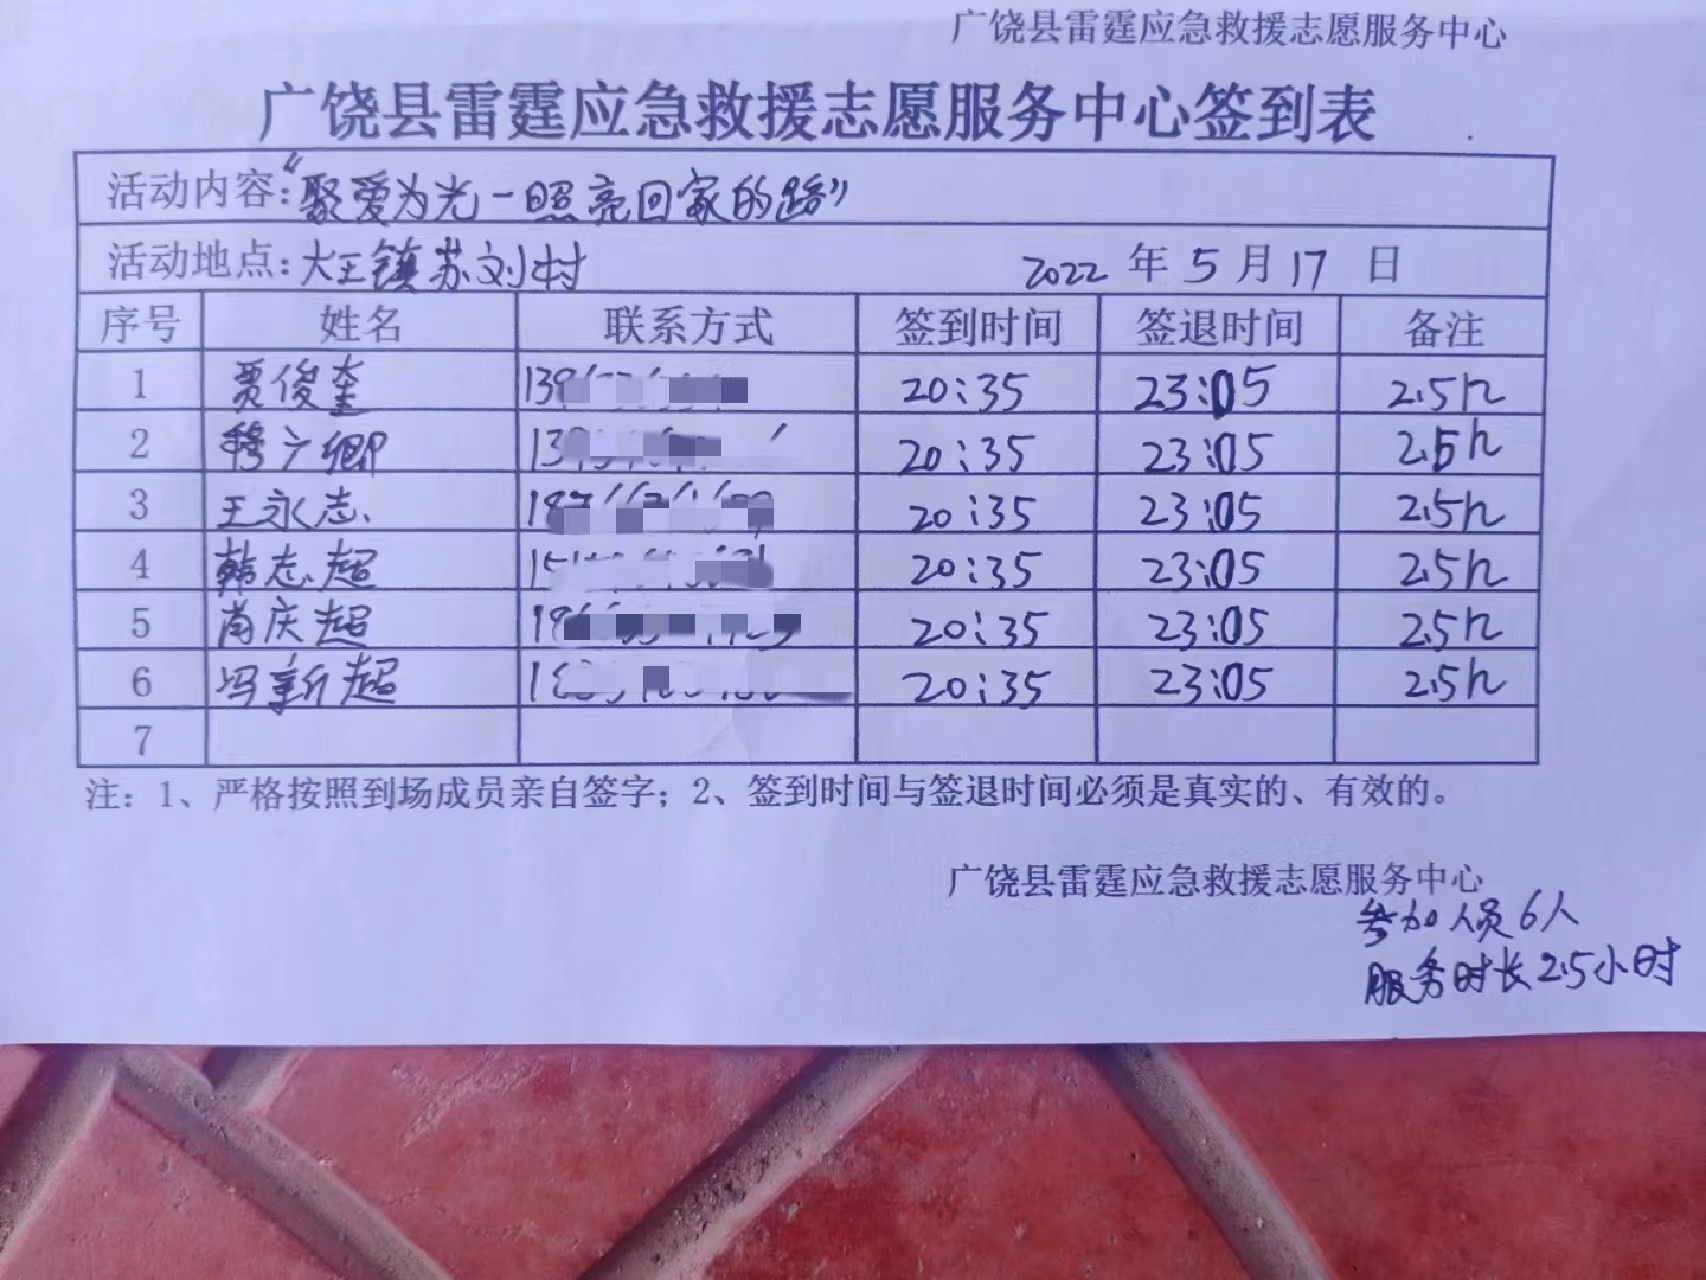 广饶县雷霆应急救援志愿服务中心
广饶县雷霆应急救援志愿服务中心签到表
活动内容:“聚爱为光一照亮回家的路”
活动地点:大王镇苏刘村 2022 年 5 月 17 日
序号 姓名 联系方式 签到时间 签退时间 备注
1 贾俊奎 139 20:35 23:05 2.5h
2 穆广卿 13 20:35 23:05 2.5h
3 王永志 187 20:35 23:05 2.5h
4 韩志超 15 20:35 23:05 2.5h
5 庆超 20:35 23:05 2.5h
6 冯新超 20:35 23:05 2.5h
7
注：1、严格按照到场成员亲自签字；2、签到时间与签退时间必须是真实的、有效的。
广饶县雷霆应急救援志愿服务中心
参加人员6人
服务时长2.5小时